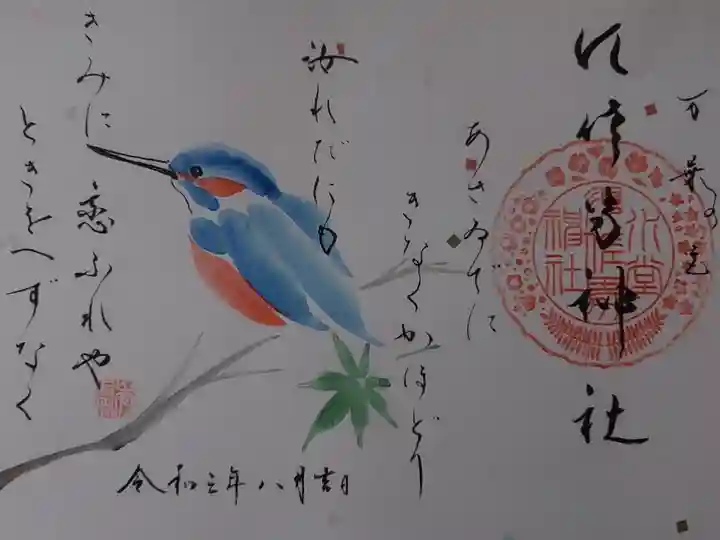 万葉の里
神社
あさゐでに
きなくかほどり
汝れだにも
きみに恋ふれや
ときをへずなく
令和三年八月吉日